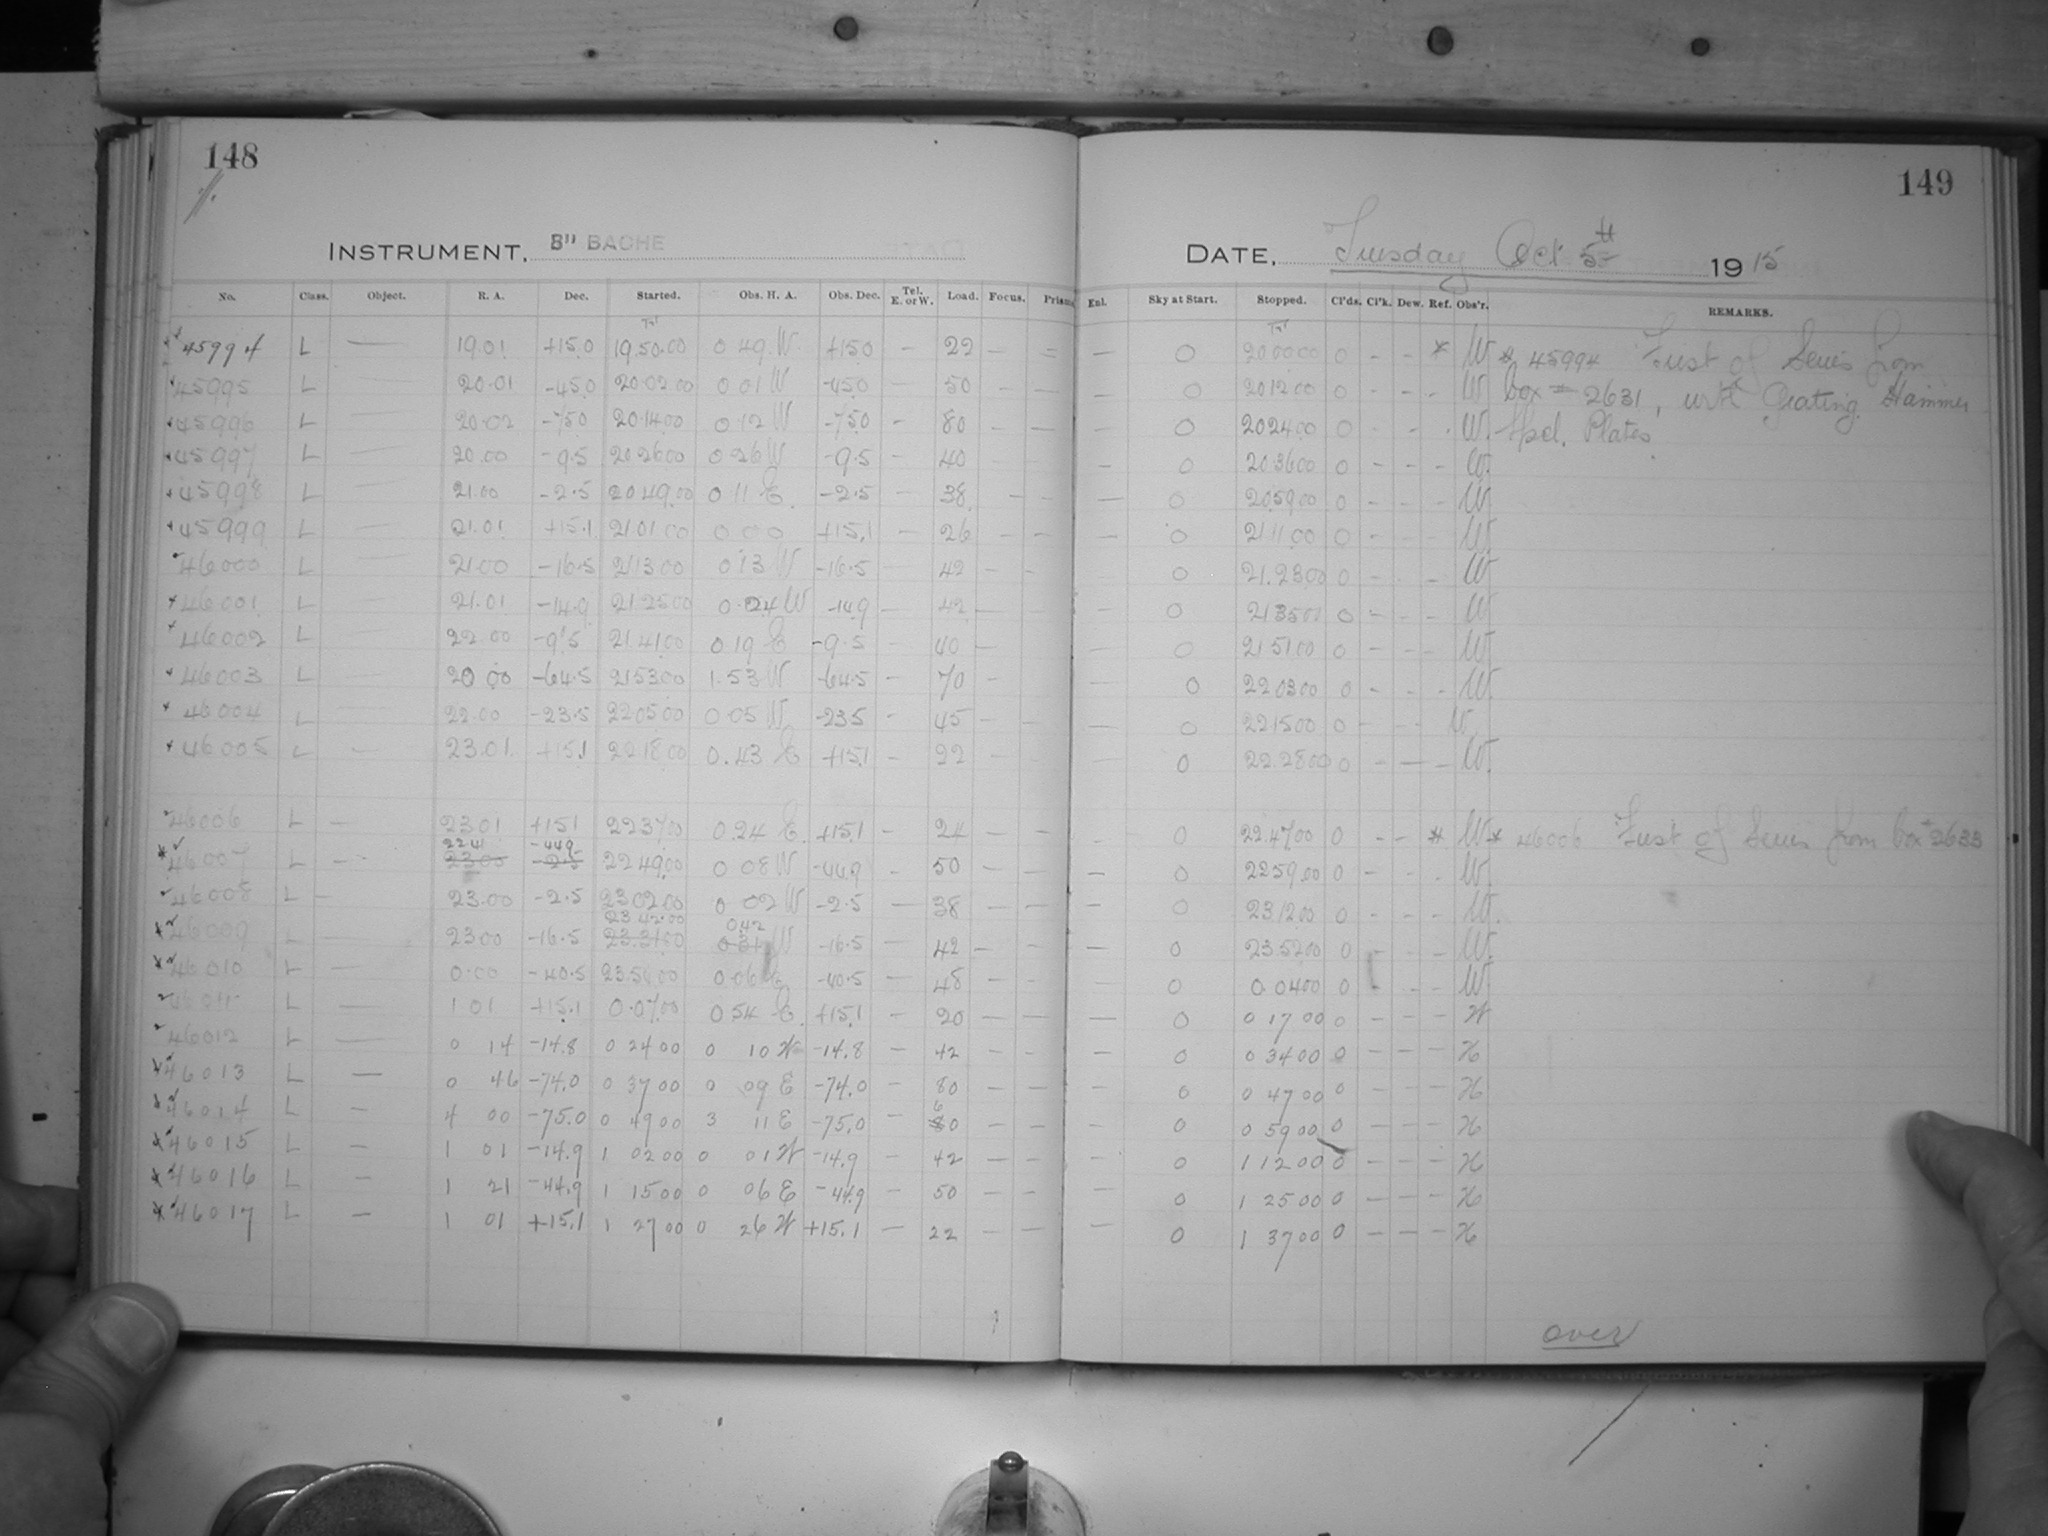 148
149
INSTRUMENT, 8" BACHE
DATE, Tuesday Oct 5th 1915
No. Class. Object. R. A. Dec. Started. Obs. H. A. Obs. Dec. Tel. E. or W. Load. Focus. Prism Enl. Sky at Start. Stopped. Cl'ds. Cl'k. Dew. Ref. Obs'r. REMARKS.
45994 L — 19.01 +15.0 19.50.00 0 49 W +15.0 — 22 — = — 0 20 00 00 0 - - * W * 45994 First of Series from
45995 L — 20.01 -45.0 20.02 00 0 01 W -45.0 — 50 — — 0 20 12 00 0 - - - W box # 2631, with Hammer
45996 L — 20.02 -75.0 20.14 00 0 12 W -75.0 - 80 — — — 0 20 24 00 0 - - - W. Spcl. Plates
45997 L — 20.00 -9.5 20 26 00 0 26 W -9.5 - 40 — — 0 20 36 00 0 - - - W.
45998 L — 21.00 -2.5 20 49 00 0 11 E -2.5 - 38 - - — 0 20 59 00 0 - - - W
45999 L — 21.01 +15.1 21 01 00 0 00 +15.1 — 26 - - — 0 21 11 00 0 - - - W.
46000 L — 21.00 -16.5 21 13 00 0 13 W -16.5 - 42 - - — 0 21.23 00 0 - - - W
46001 L — 21.01 -14.9 21 25 00 0.24 W -14.9 - 42 — - 0 21 35 00 0 - - - W
46002 L — 22.00 -9.5 21 41 00 0 19 E -9.5 - 40 — — 0 21 51 00 0 - - - W
46003 L — 20 00 -64.5 21 53 00 1.53 W -64.5 - 70 - — 0 22 03 00 0 - - - W.
46004 L — 22.00 -23.5 22 05 00 0 05 W -23.5 - 45 - - — 0 22 15 00 0 - - - W.
46005 L — 23.01 +15.1 22 18 00 0.43 E +15.1 - 22 - — 0 22.28 00 0 - — - W.
46006 L — 23 01 +15.1 22 37 00 0 24 E +15.1 - 24 - - 0 22.47 00 0 - - * W * 46006 First of Series from box # 2633
22 41 -44.9
46007 L - - 23 00 -2.5 22 49 00 0 08 W -44.9 - 50 — — — 0 22 59 00 0 - - - W.
46008 L — 23.00 -2.5 23 02 00 0 02 W -2.5 — 38 — — — 0 23 12 00 0 - - - W.
23 42 00 0.42
46009 L — 23 00 -16.5 23 31 00 0 31 W -16.5 - 42 - — — 0 23 52 00 0 - - - W.
46010 L — 0.00 -40.5 23 54 00 0 06 E -40.5 — 48 - — — 0 0 04 00 0 - - - W.
46011 L — 1 01 +15.1 0.07 00 0 54 E +15.1 - 20 — — — 0 0 17 00 0 - - -
46012 L — 0 14 -14.8 0 24 00 0 10 W -14.8 — 42 — - — 0 0 34 00 0 - - -
46013 L — 0 46 -74.0 0 37 00 0 09 E -74.0 — 80 - — — 0 0 47 00 0 - - -
46014 L — 4 00 -75.0 0 49 00 3 11 E -75.0 — 60 - — — 0 0 59 00 0 - - -
46015 L — 1 01 -14.9 1 02 00 0 01 W -14.9 — 42 — — — 0 1 12 00 0 - - -
46016 L — 1 21 -44.9 1 15 00 0 06 E -44.9 - 50 — - — 0 1 25 00 0 - - -
46017 L — 1 01 +15.1 1 27 00 0 26 W +15.1 — 22 — — — 0 1 37 00 0 - - -
over